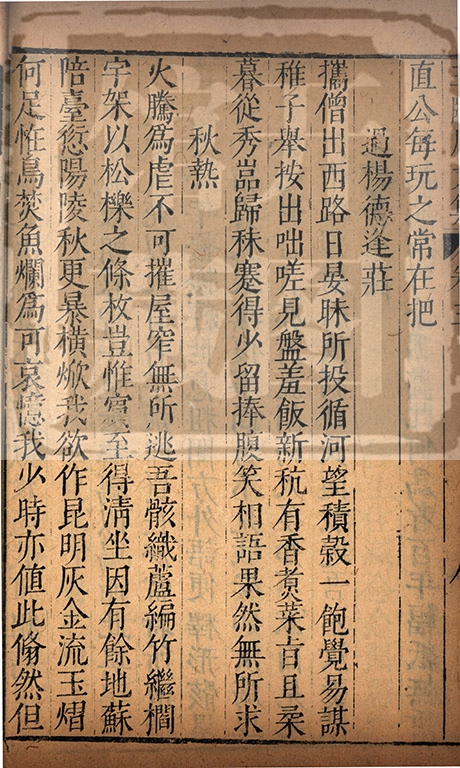 直公每玩之常在把
過楊德逢莊
攜僧出西路日晏昧所投循河望積穀一飽覺易謀
稚子舉按出咄嗟見盤羞飯新秔有香煑菜旨且柔
暮從秀嵓歸秣蹇得少留捧腹笑相語果然無所求
秋熱
火騰為虐不可摧屋窄無所逃吾骸織蘆編竹繼櫩
宇架以松櫟之條枚豈惟賔至得清坐因有餘地蘇
陪臺愆陽陵秋更暴横焮我欲作昆明灰金流玉熠
何足恠鳥焚魚爛為可哀憶我少時亦值此翛然但